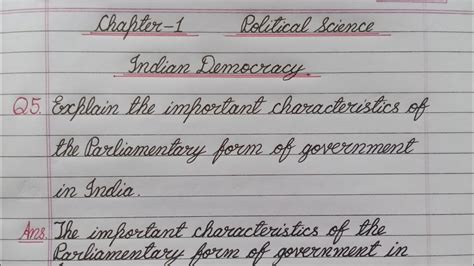 Chapter-1 Political Science
Indian Democracy.
Q5. Explain the important characteristics of
the Parliamentary form of government
in India.
Ans. The important characteristics of the
Parliamentary form of government in